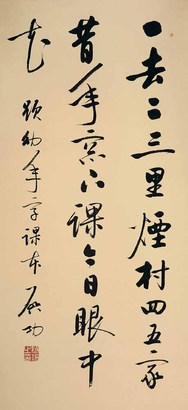 一去二三里煙村四五家
昔年窗下課今日眼中
花 題幼年字課本 启功